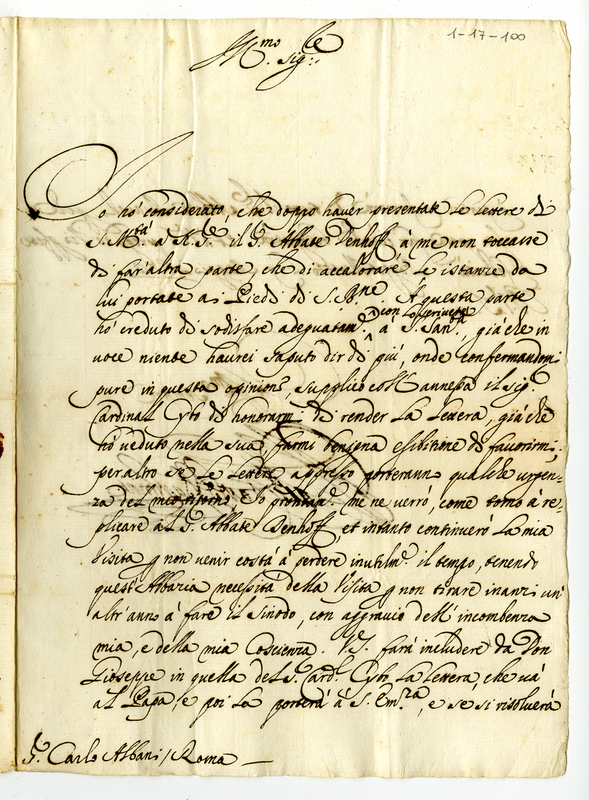 1-17-100
Ill.mo Sig.re
Io hò considerato, che doppo haver presentate le lettere di
S. M.tà à N. S.re il S. Abbate Denhoff à me non toccasse
di far'altra parte, che di accalorare le istanze da
lui portate a i Piedi di S. B.ne. A questa parte
hò creduto di sodisfare adeguatam.te con lo scrivere à S. San.tà, già che in
voce niente haurei saputo dir di più, onde confermandomi
pure in questa opinione, supplico coll'annessa il sig.r
Cardinal Cybo di honorarmi di render la lettera, già che
hò veduto nella sua farmi benigna esibitione di favorirmi;
per altro se le lettere appresso porteranno qualche urgen-
za del mio ritorno Io prontam.te me ne verrò, come torno à re-
plicare al S. Abbate Denhoff, et intanto continuerò la mia
Visita p non venir costà à perdere inutilm.te il tempo, tenendo
quest'Abbazia necessità della Visita p non tirare inanzi un
altr'anno à fare il Sinodo, con aggravio dell'incombenza
mia, e della mia Coscienza. V.S. farà includere da Don
Gioseppe in quella del S. Card.l Cybo la lettera, che và
al Papa, e poi la porterà à S. Em.za, e se si risolverà
S. Carlo Albani / Roma